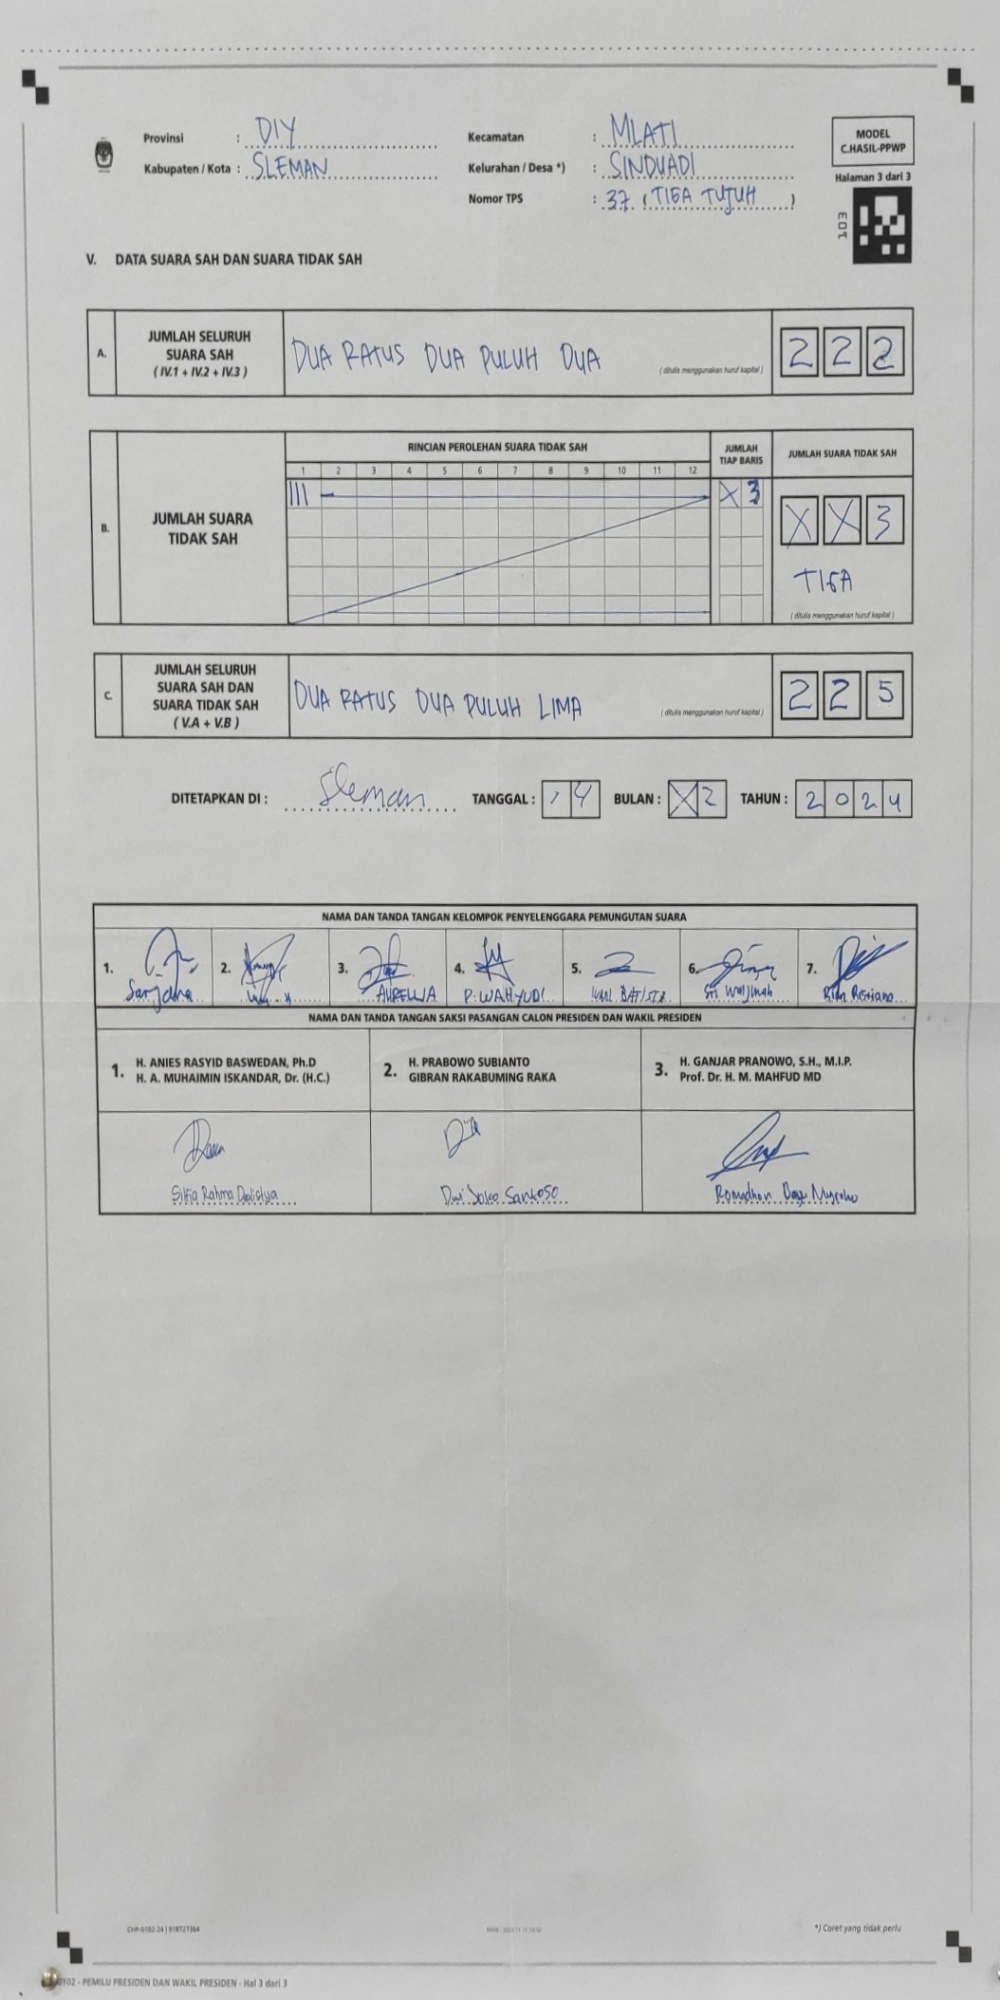 Provinsi : DIY
Kabupaten / Kota : SLEMAN
Kecamatan : MLATI
Kelurahan / Desa *) : SINDUADI
Nomor TPS : 37 ( TIGA TUJUH )
MODEL
C.HASIL-PPWP
Halaman 3 dari 3
103
V. DATA SUARA SAH DAN SUARA TIDAK SAH
A. JUMLAH SELURUH
SUARA SAH
( IV.1 + IV.2 + IV.3 )
DUA RATUS DUA PULUH DUA
( ditulis menggunakan huruf kapital )
2 2 2
B. JUMLAH SUARA
TIDAK SAH
RINCIAN PEROLEHAN SUARA TIDAK SAH
1 2 3 4 5 6 7 8 9 10 11 12
III
JUMLAH
TIAP BARIS
X 3
JUMLAH SUARA TIDAK SAH
X X 3
TIGA
( ditulis menggunakan huruf kapital )
C. JUMLAH SELURUH
SUARA SAH DAN
SUARA TIDAK SAH
( V.A + V.B )
DUA RATUS DUA PULUH LIMA
( ditulis menggunakan huruf kapital )
2 2 5
DITETAPKAN DI : Sleman TANGGAL : 1 4 BULAN : X 2 TAHUN : 2 0 2 4
NAMA DAN TANDA TANGAN KELOMPOK PENYELENGGARA PEMUNGUTAN SUARA
1. 2. 3. 4. 5. 6. 7.
Sarjana AURELLIA P. WAHYUDI
NAMA DAN TANDA TANGAN SAKSI PASANGAN CALON PRESIDEN DAN WAKIL PRESIDEN
1. H. ANIES RASYID BASWEDAN, Ph.D
H. A. MUHAIMIN ISKANDAR, Dr. (H.C.)
2. H. PRABOWO SUBIANTO
GIBRAN RAKABUMING RAKA
3. H. GANJAR PRANOWO, S.H., M.I.P.
Prof. Dr. H. M. MAHFUD MD
Silfia Rahma
Dwi Joko Santoso
*) Coret yang tidak perlu
0102 - PEMILU PRESIDEN DAN WAKIL PRESIDEN - Hal 3 dari 3